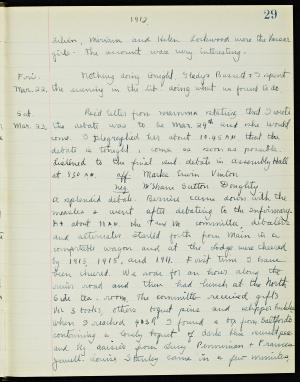 29
1912
Eileen, Miriam and Helen Lockwood were the Vassar
girls. The account was very interesting.
Fri. Nothing doing tonight. Gladys Bassett & I spent
Mar. 22. the evening in the lib doing what we found to do.
Sat. Rec'd letter from mamma relating that I wrote
Mar. 23. the debate was to be Mar. 29th and she would
come. I telegraphed her about 10.45 AM that the
debate is tonight; come as soon as possible.
Listened to the final debate in assembly Hall
at 9.30 AM. aff Marks Erwin Vinton
neg McShane Sutton Doughty
A splendid debate. Bernice came down with the
measles & went after debating to the Infirmary.
At about 11 AM the two committee, debaters
and alternates started forth from Main in a
comfortable wagon and at the lodge were cheered
by 1913, 1915, and 1911. First time I have
been cheered. We rode for an hour along the
river road and then had lunch at the North
Side tea room. The committee received gifts
When I reached 423 I found a box
containing a lovely bouquet of dark blue
and daisies from Lucy Penniman & Frances
Jewett. Louise Stanley came in a few minutes